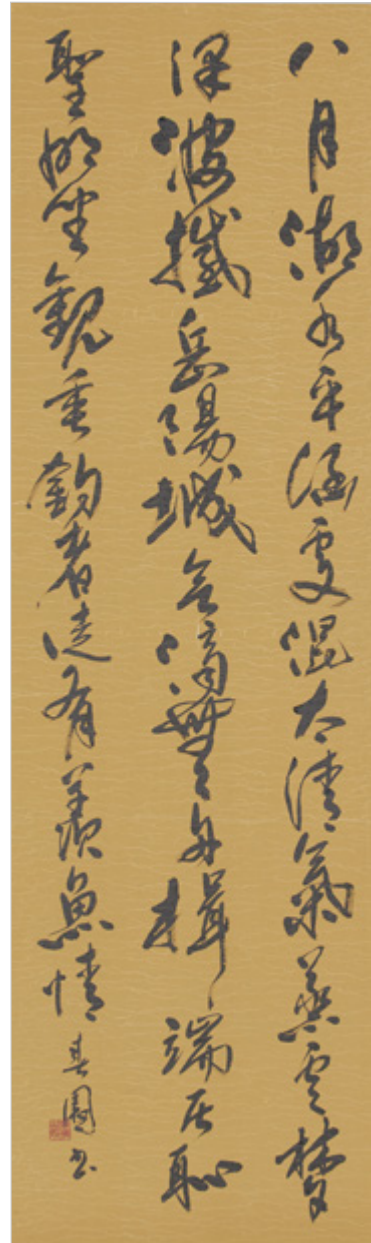 八月湖水平涵虛混太清氣蒸雲夢
澤波撼岳陽城欲濟無舟楫端居恥
聖明坐觀垂釣者徒有羨魚情 春園书